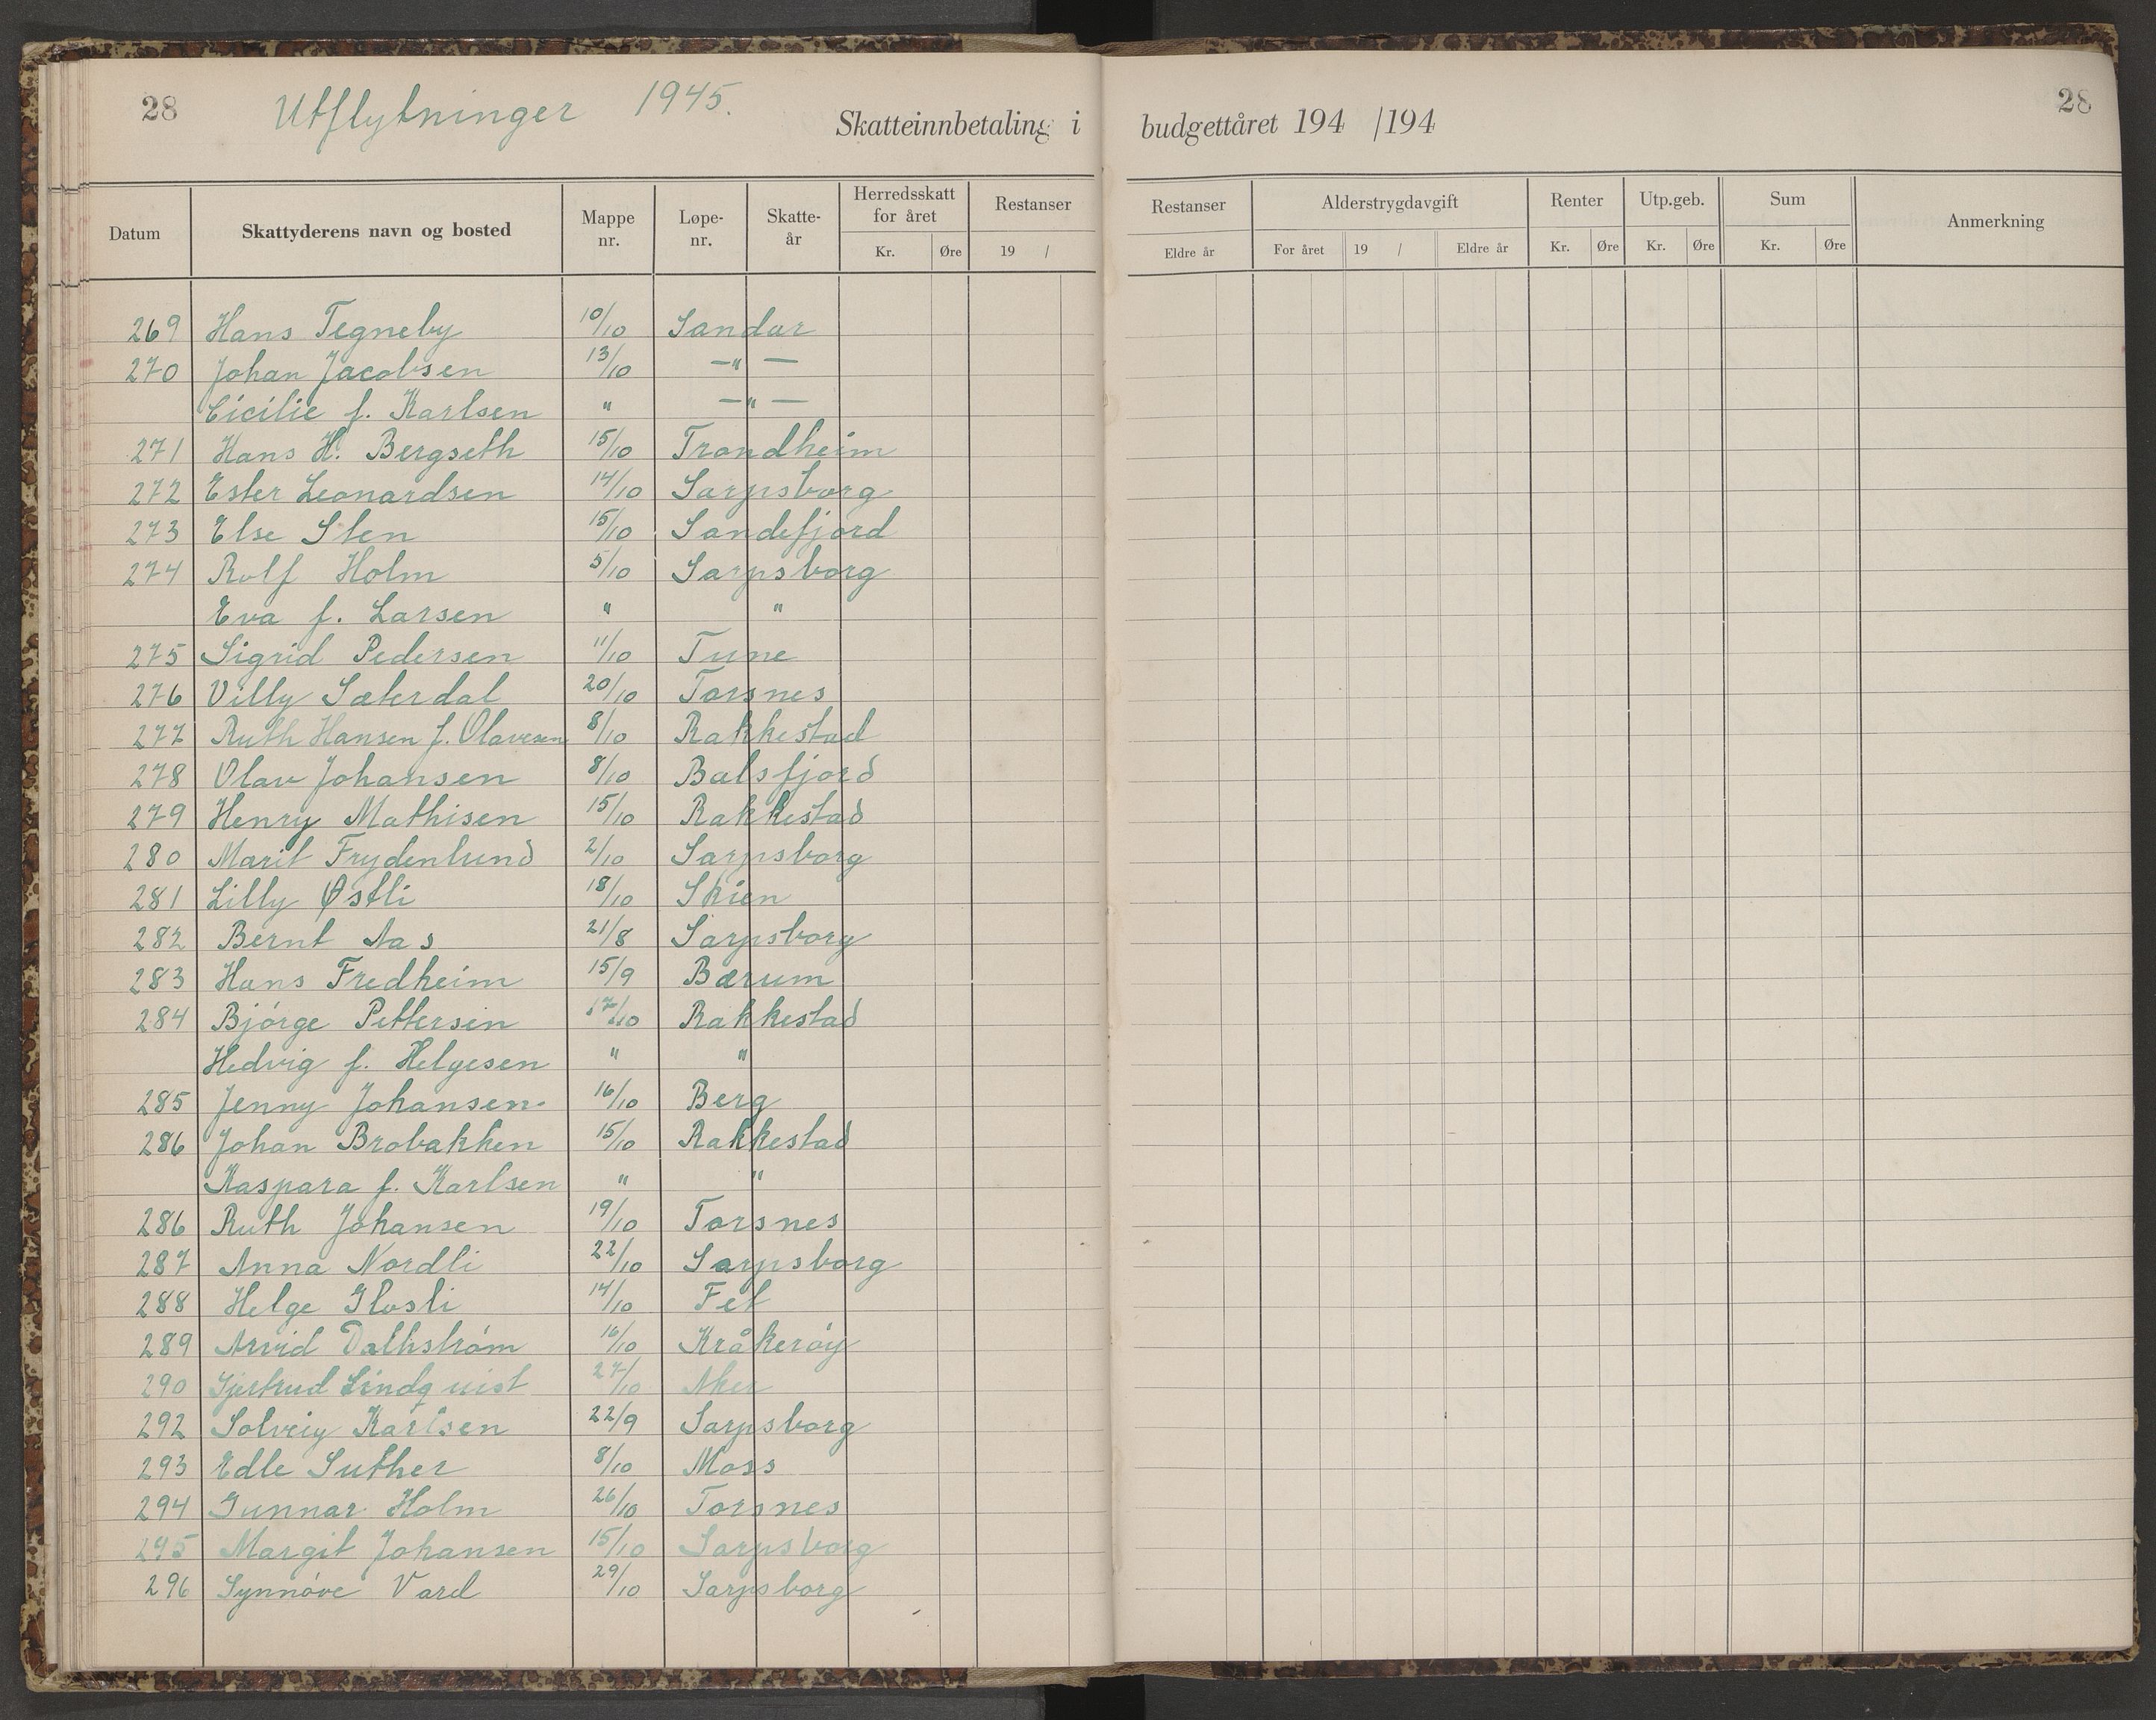 28 Utflytninger 1945.
Skatteinnbetaling i budgettåret 194 /194
28
Datum Skattyderens navn og bosted Mappe nr. Løpe-nr. Skatte-år Herredsskatt for året Kr. Øre Restanser 19 / Restanser Eldre år Alderstrygdavgift For året 19 / Eldre år Renter Kr. Øre Utp.geb. Kr. Øre Sum Kr. Øre Anmerkning
269 Hans Tegneby 10/10 Sandar
270 Johan Jacobsen 13/10 —"—
Cicilie f. Karlsen " —"—
271 Hans H. Bergseth 15/10 Trondheim
272 Ester Leonardsen 14/10 Sarpsborg
273 Else Sten 15/10 Sandefjord
274 Rolf Holm 5/10 Sarpsborg
Eva f. Larsen " "
275 Sigrid Pedersen 11/10 Tune
276 Villy Sæterdal 20/10 Torsnes
277 Ruth Hansen f. Olavesen 8/10 Rakkestad
278 Olav Johansen 8/10 Balsfjord
279 Henry Mathisen 15/10 Rakkestad
280 Marit Frydenlund 2/10 Sarpsborg
281 Lilly Østli 18/10 Skien
282 Bernt Aas 21/8 Sarpsborg
283 Hans Fredheim 15/9 Bærum
284 Bjørge Pettersen 17/10 Rakkestad
Hedvig f. Helgesen " "
285 Jenny Johansen 16/10 Berg
286 Johan Brobakken 15/10 Rakkestad
Kaspara f. Karlsen " "
286 Ruth Johansen 19/10 Torsnes
287 Anna Nordli 22/10 Sarpsborg
288 Helge Glosli 14/10 Fet
289 Arvid Dalhstrøm 16/10 Kråkerøy
290 Gjertrud Lindquist 27/10 Aker
292 Solveig Karlsen 22/9 Sarpsborg
293 Edle Suther 8/10 Moss
294 Gunnar Holm 26/10 Torsnes
295 Margit Johansen 15/10 Sarpsborg
296 Synnøve Vard 29/10 Sarpsborg